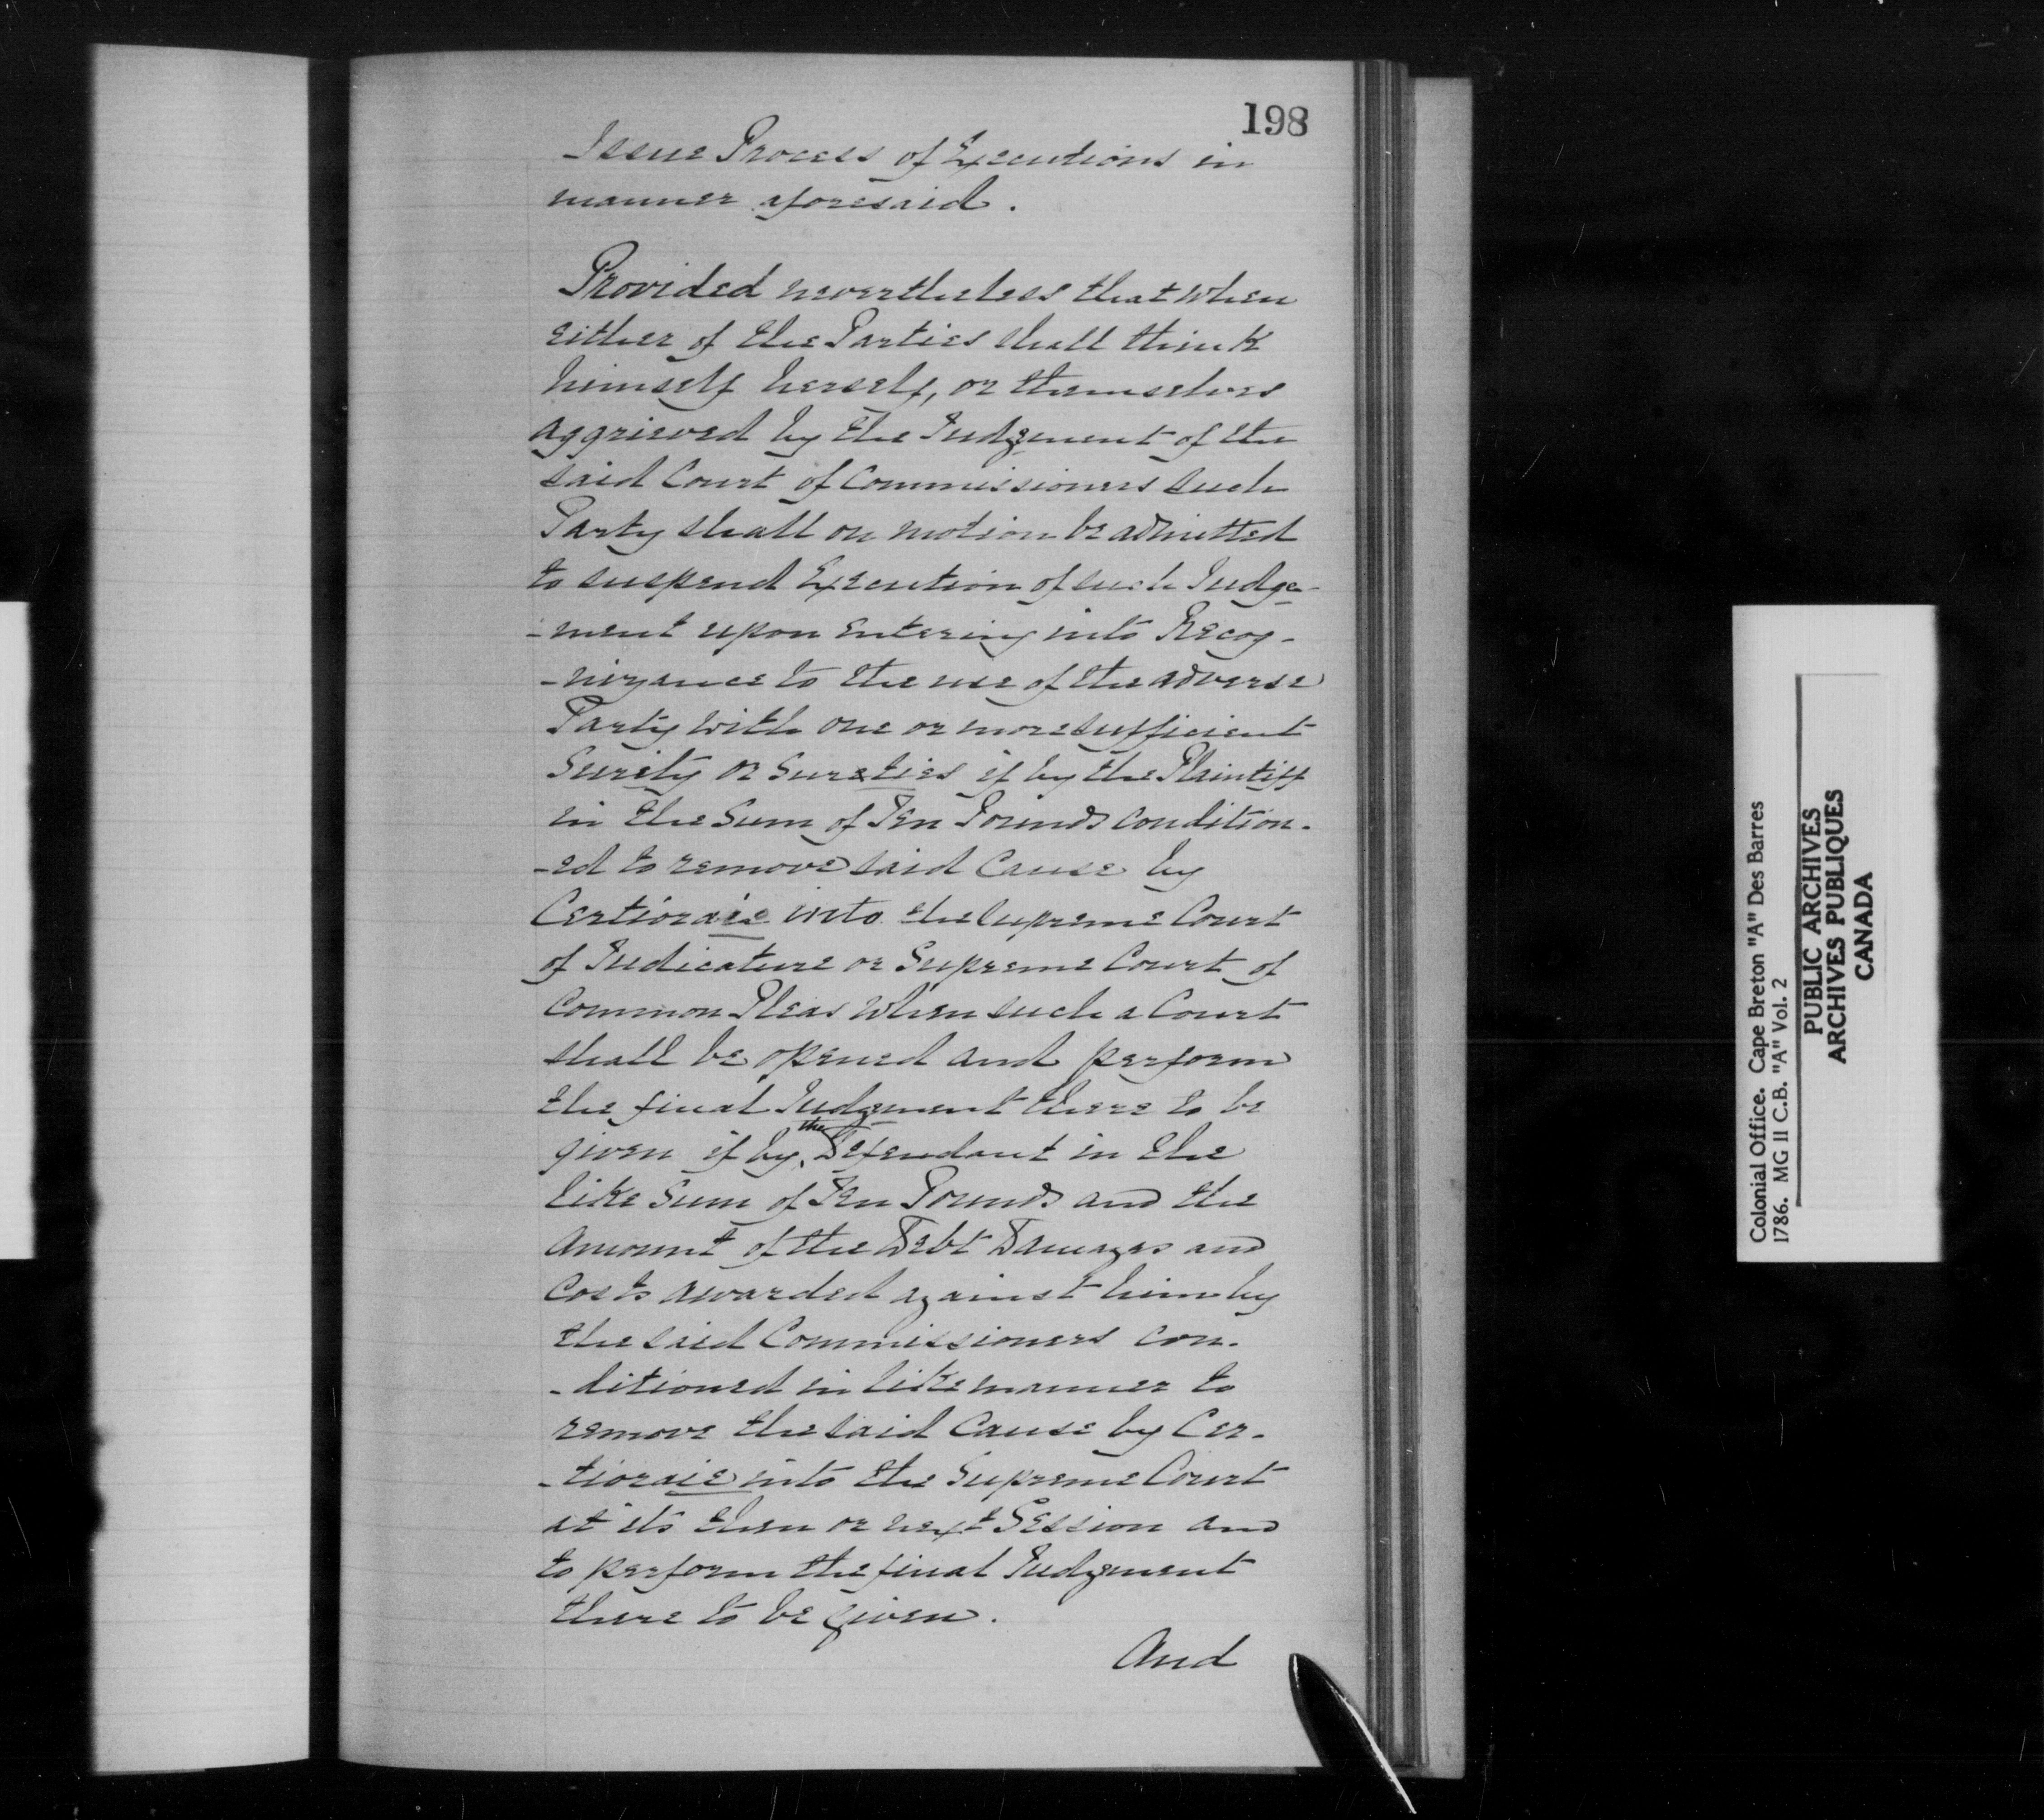 198
Issue Process of Executions in
manner aforesaid.
Provided nevertheless that when
either of the Parties shall think
himself herself, or themselves
aggrieved by the Judgement of the
said Court of Commissioners such
Party shall on motion be admitted
to suspend Execution of such Judge-
-ment upon entering into Recog-
-nizance to the use of the adverse
Party with one or more sufficient
Surety or Sureties if by the Plaintiff
in the Sum of Ten Pounds condition-
-ed to remove said Cause by
Certioraie into the Supreme Court
of Judicature or Supreme Court of
Common Pleas when such a Court
shall be opened and perform
the final Judgement there to be
given if by the Defendant in the
like Sum of Ten Pounds and the
Amount of the Debt Damages and
Costs awarded against him by
the said Commissioners con-
-ditioned in like manner to
remove the said Cause by Cer-
-tioraie into the Supreme Court
at its then or next Session and
to perform the final Judgement
there to be given.
And
Colonial Office. Cape Breton "A" Des Barres
1786. MG II C.B. "A" Vol. 2
PUBLIC ARCHIVES
ARCHIVES PUBLIQUES
CANADA